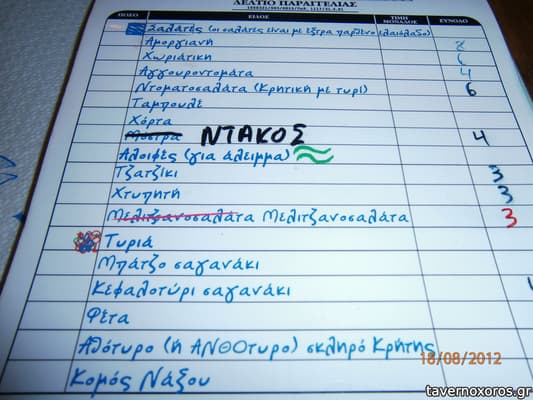 ΔΕΛΤΙΟ ΠΑΡΑΓΓΕΛΙΑΣ
ΠΟΣΟ ΕΙΔΟΣ ΤΙΜΗ ΜΟΝΑΔΟΣ ΣΥΝΟΛΟ
Σαλάτες (οι σαλάτες είναι με έξτρα παρθένο ελαιόλαδο)
Αμοργιανή 8
Χωριάτικη 6
Αγγουροντομάτα 4
Ντοματοσαλάτα (Κρητική με τυρί) 6
Ταμπουλέ
Χόρτα
ΝΤΑΚΟΣ 4
Αλοιφές (για άλειμμα)
Τζατζίκι 3
Χτυπητή 3
Μελιτζανοσαλάτα Μελιτζανοσαλάτα 3
Τυριά
Μπάτζο σαγανάκι
Κεφαλοτύρι σαγανάκι
Φέτα
Αθότυρο (ή ΑΝΘΟτυρο) σκληρό Κρήτης
Κομός Νάξου
18/08/2012
tavernoxoros.gr